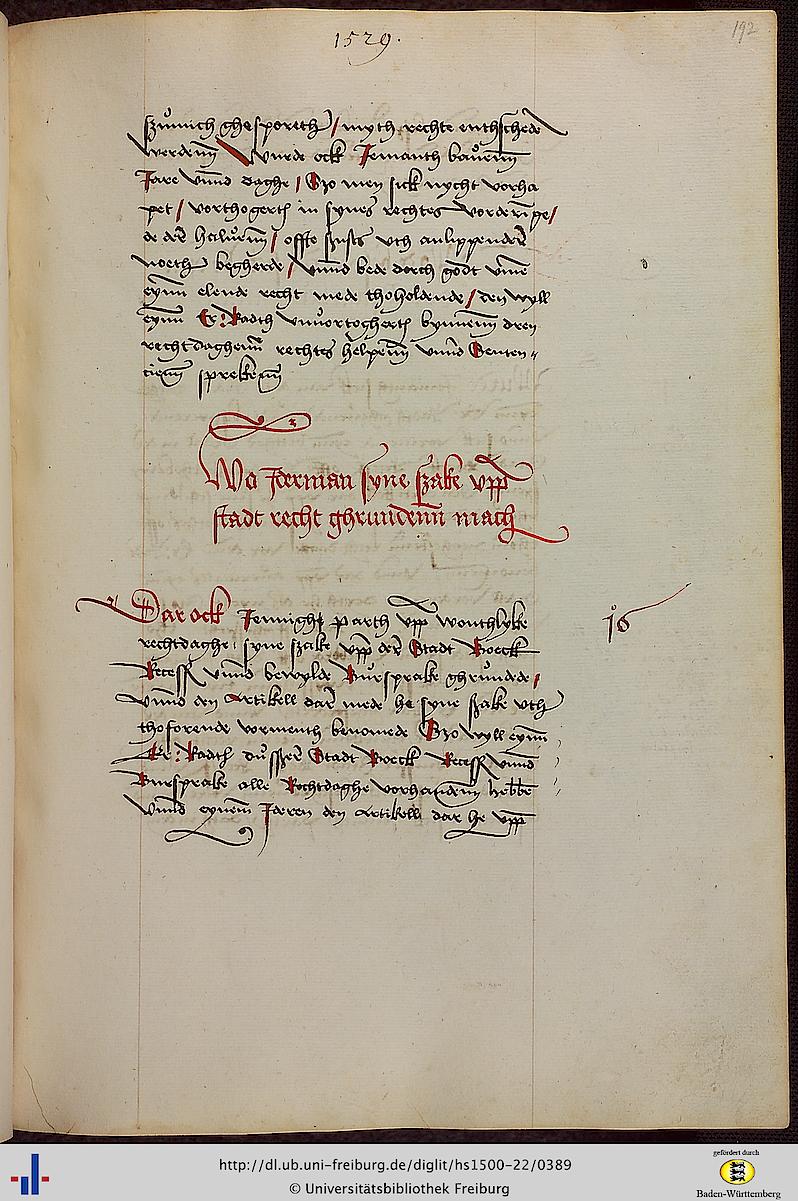 1529.
192
szunnich ghesporeth / myth rechte entschede
werdenn Wurde ock Jemanth bauenn
Jare vnnd daghe / Szo men sick nycht vorha
pet / vorthogerth in synes rechtes vorderinge /
de den heiluenn / offte szusts vth anlippender
noeth begherde / vnnd bede dorch godt vmme
eynn elende recht mede thoholdende / den wyll
eynn Er: Radth vnuortogherth bynnenn dren
rechtdaghenn rechtes helpenn vnnd Senten-
tienn sprekenn
Wo Jderman syne szake vpp
stadt recht ghrundenn mach
Dar ock Jennigh parth vpp wonthlyke
rechtdaghe, syne szake vpp der Stadt Boeck
Recess vnnd bewylde Bursprake ghrundede /
vnnd den Artikell dar mede he syne szake vth
thoforende vormenth benomede Szo wyll eynn
Er: Radth dusszer Stadt Boeck Recess vnnd
Bursprake alle Rechtdaghe vorhandenn hebbe
vnnd eynem Jderen den Artikell dar he vpp
16
http://dl.ub.uni-freiburg.de/diglit/hs1500-22/0389
© Universitätsbibliothek Freiburg
gefördert durch
Baden-Württemberg